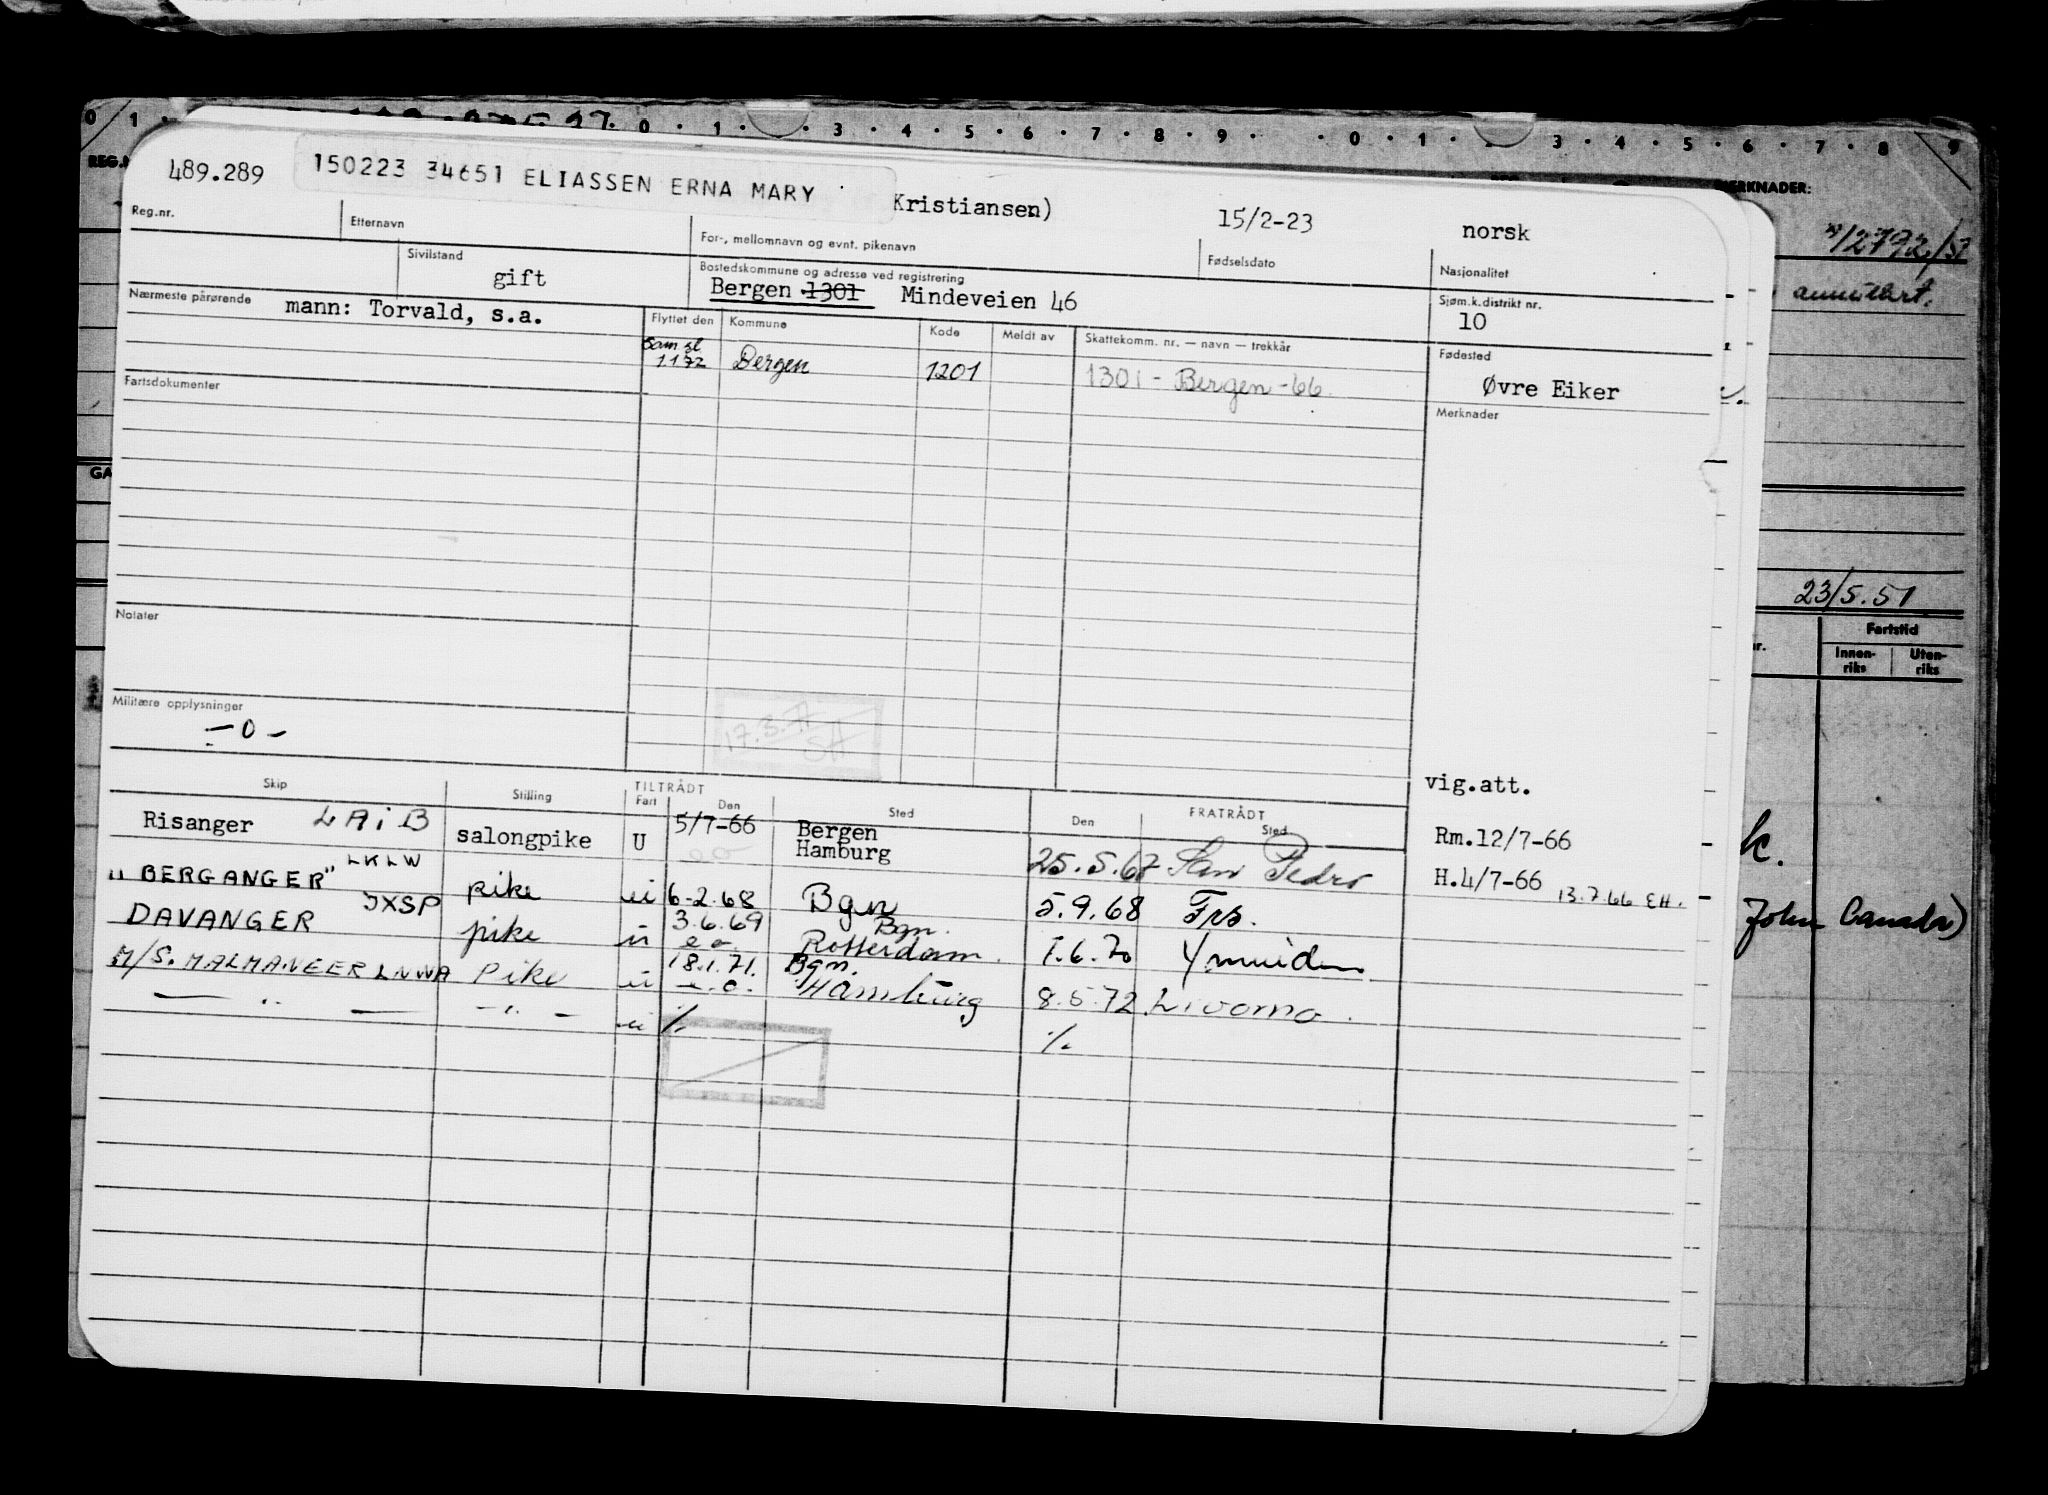 0 1 0 1 3 4 5 6 7 8 9 0 1 3 4 5 6 7 8 9
489.289 150223 34651 ELIASSEN ERNA MARY Kristiansen) 15/2-23 norsk
Reg.nr. Etternavn For-, mellomnavn og evnt. pikenavn Fødselsdato Nasjonalitet
Sivilstand gift
Bostedskommune og adresse ved registrering
Bergen 1301 Mindeveien 46
Sjøm.k.distrikt nr.
10
Nærmeste pårørende mann: Torvald, s.a.
Flyttet den Kommune Kode Meldt av Skattekomm. nr. — navn — trekkår
1.1.72 Bergen 1201 1301 - Bergen - 66
Fødested
Øvre Eiker
Fartsdokumenter
Merknader
Notater
Militære opplysninger
- 0 -
17.3.71
SA
vig.att.
Rm.12/7-66
H.4/7-66 13.7.66 EH.
Skip Stilling TILTRÅDT Fart Den Sted FRATRÅDT Den Sted
Risanger LAIB salongpike U 5/7-66 Bergen
Hamburg 25.5.67 San Pedro
"BERGANGER" LKLW pike u 6-2.68 Bgn 5.9.68 Frs.
DAVANGER JXSP pike u 3.6.69 Bgn.
Rotterdam. 1.6.70 Ymuiden
M/S. MALMANGER LNWA Pike u 18.1.71. Bgn.
Hamburg 8.5.72 Livorno.
— " — - " - u %. %.
MERKNADER:
2792/57
annullert.
23/5.51
Fartstid
Innen-
riks
Uten-
riks
k.
John Canada)